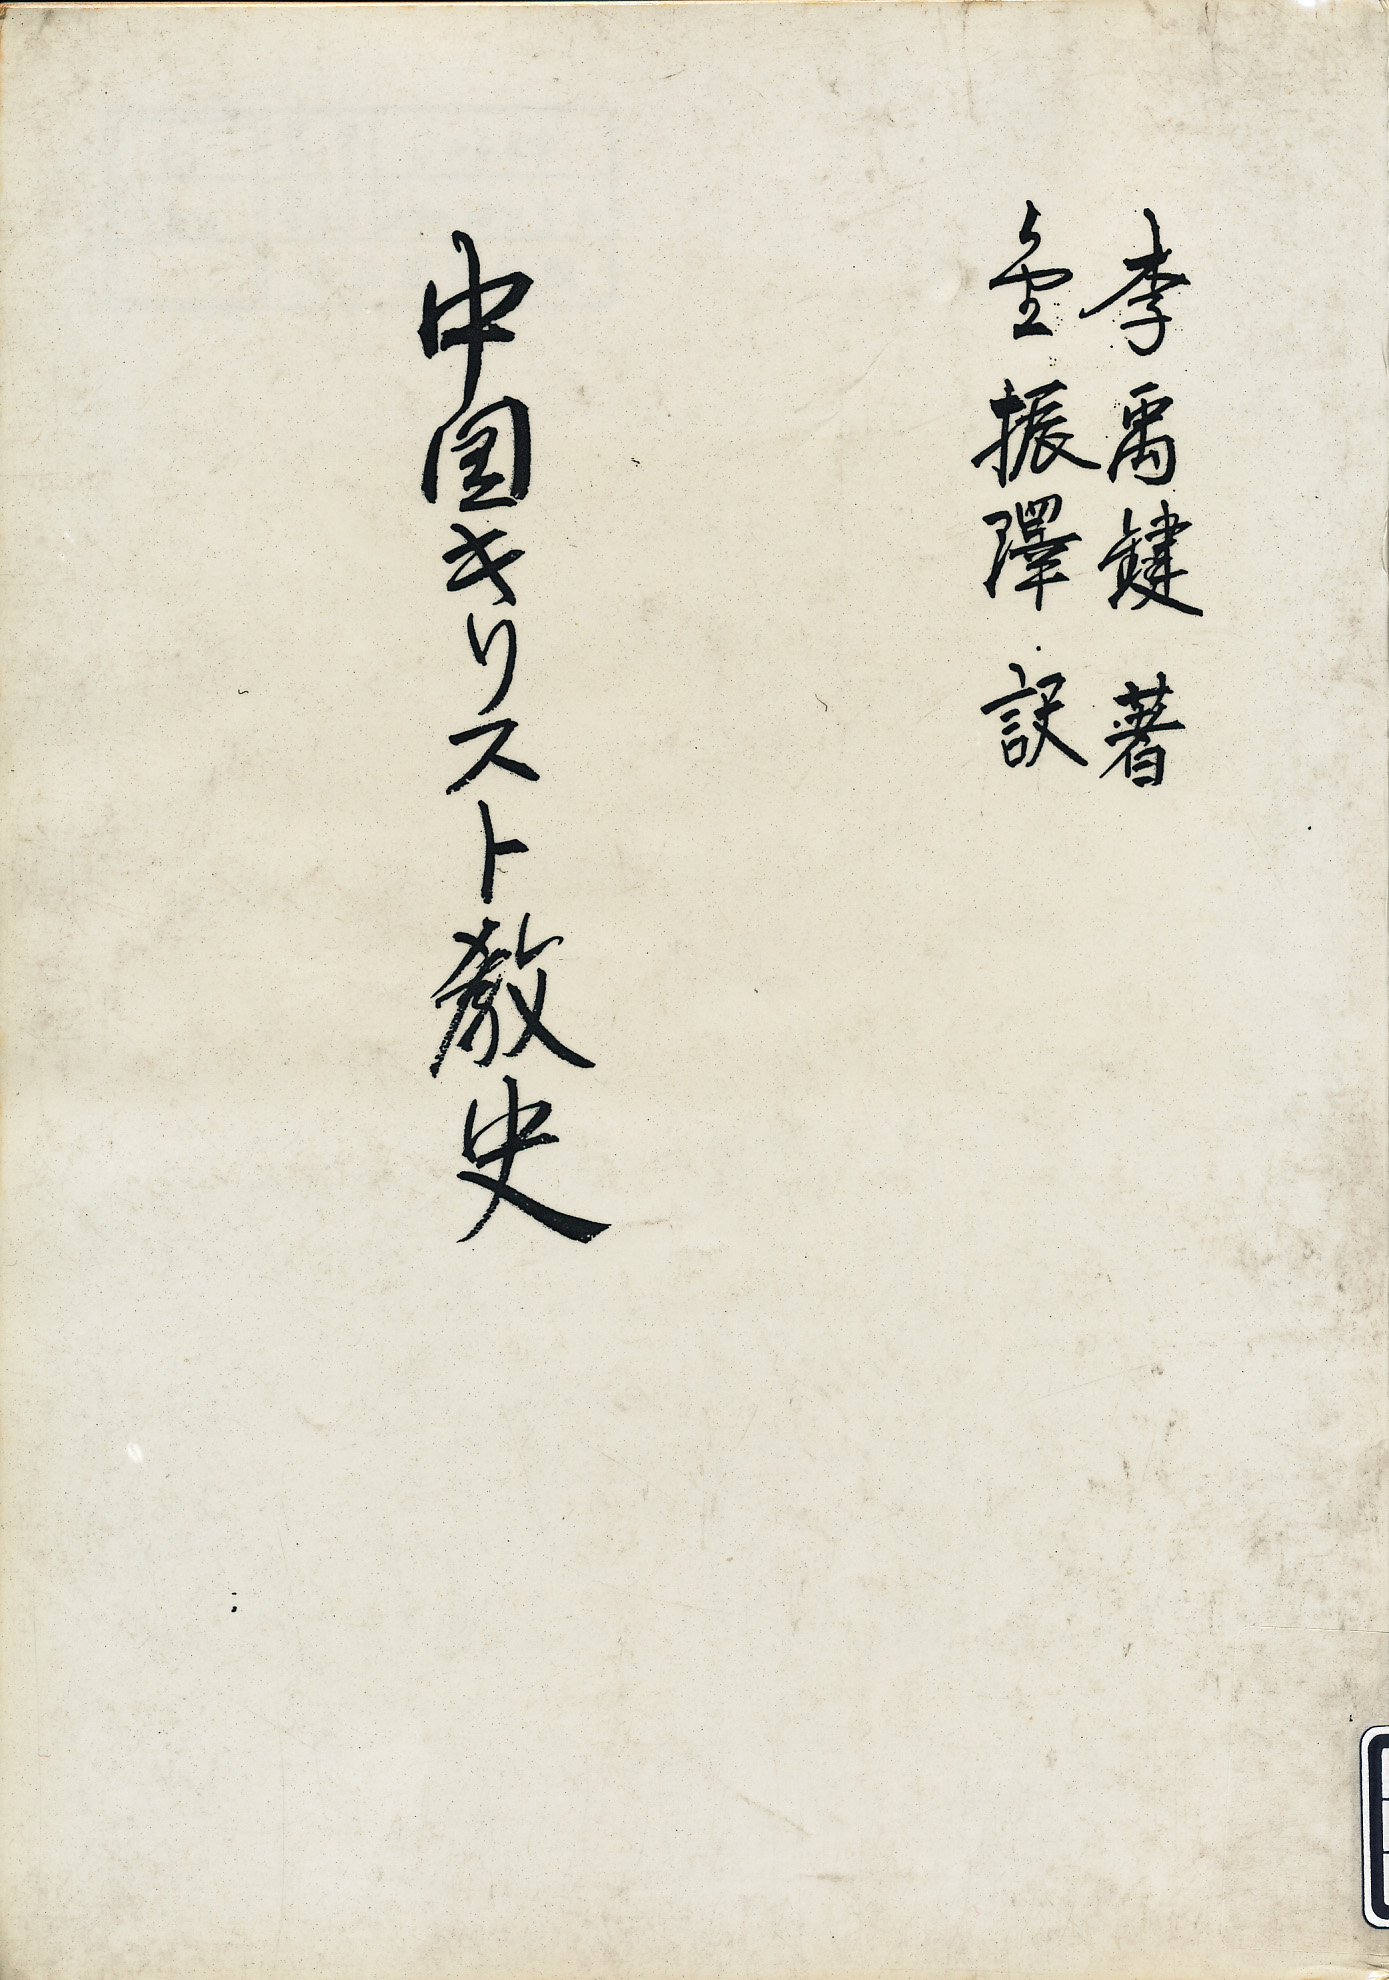 李禹鍵 著
金振澤 訳
中国キリスト教史